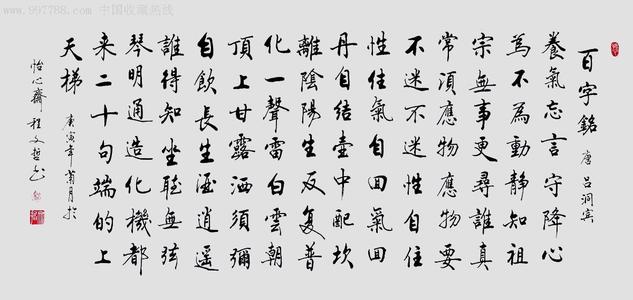 www.997788.com 中国收藏热线
百字銘 唐 呂洞賓
養氣忘言守降心
為不為動靜知祖
宗無事更尋誰真
常須應物應物要
不迷不迷性自住
性住氣自回氣回
丹自結壺中配坎
離陰陽生反復普
化一聲雷白雲朝
頂上甘露洒須彌
自飲長生酒逍遙
誰得知坐聽無弦
琴明通造化機都
来二十句端的上
天梯 庚寅年菊月於
怡心齋 程文